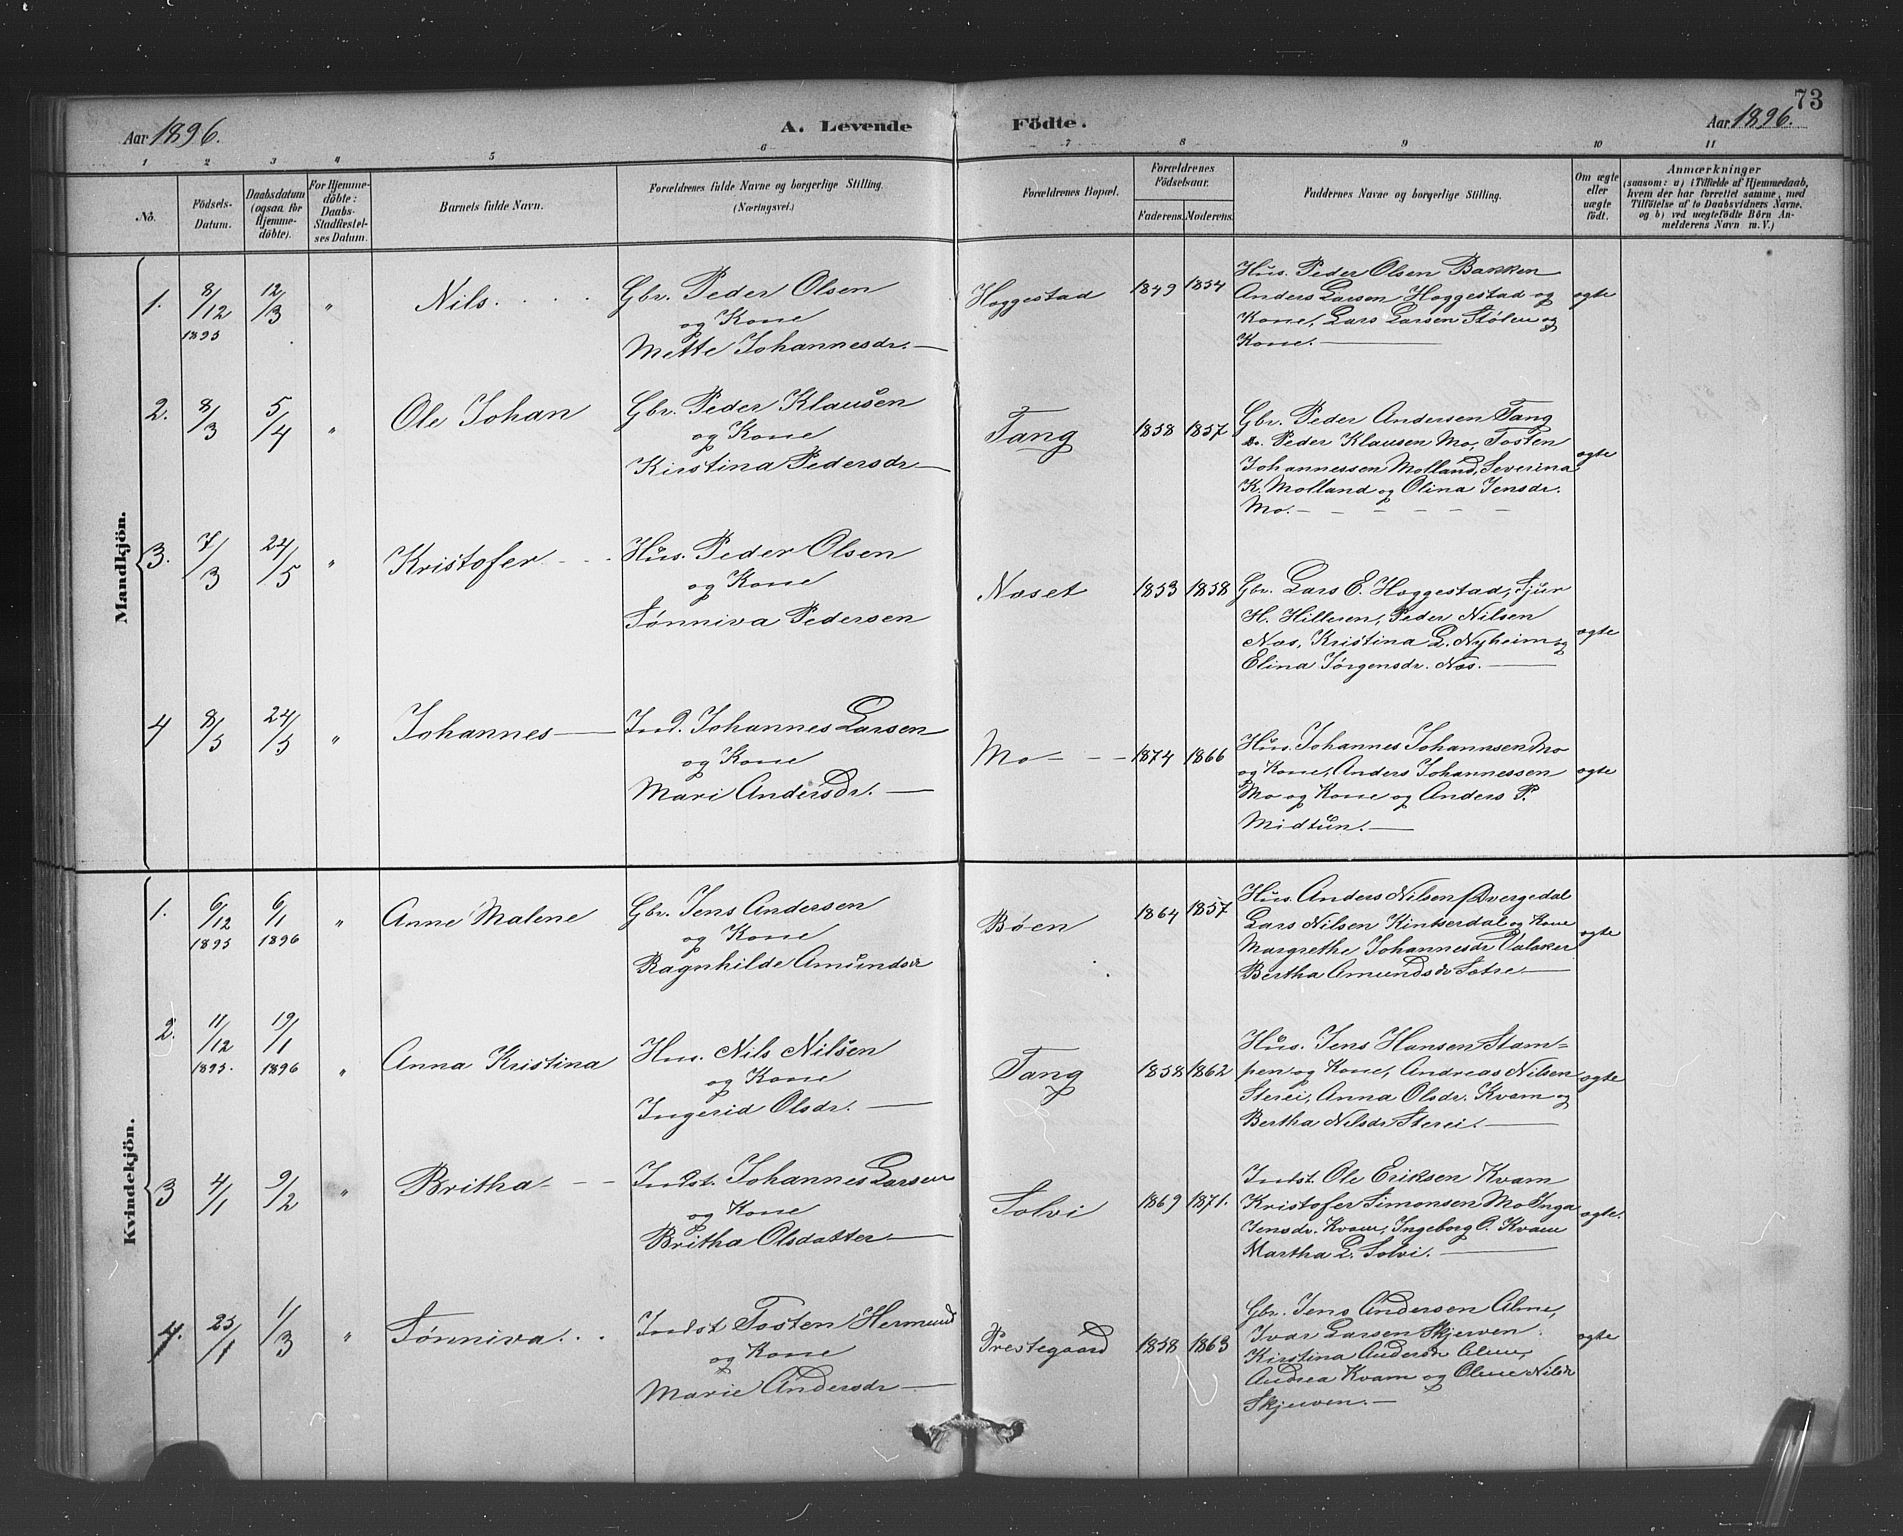 73
Aar 1896. A. Levende Födte. Aar 1896.
1 2 3 4 5 6 7 8 9 10 11
No.
Födsels-
Datum.
Daabsdatum
(ogsaa for
Hjemme-
döbte).
For Hjemme-
döbte:
Daabs-
Stadfæstel-
ses Datum.
Barnets fulde Navn.
Forældrenes fulde Navne og borgerlige Stilling.
(Næringsvei.)
Forældrenes Bopæl.
Forældrenes
Födselsaar.
Faderens. Moderens.
Faddernes Navne og borgerlige Stilling.
Om ægte
eller
uægte
födt.
Anmærkninger
(saasom: a) i Tilfælde af Hjemmedaab,
hvem der har forrettet samme, med
Tilföielse af to Daabsvidners Navne,
og b) ved uægtefödte Börn An-
melderens Navn m. V.)
Mandkjön.
1. 8/12 1895 12/3 " Nils.
Gbr. Peder Olsen
og Kone
Mette Johannesdr.
Hoggestad 1849 1854
Hus. Peder Olsen Bakken
Anders Larsen Hoggestad og
Kone, Lars Larsen Stølen og
Kone.
ægte
2. 8/3 5/4 " Ole Johan
Gbr. Peder Klausen
og Kone
Kirstina Pedersdr
Tang 1858 1857
Gbr. Peder Andersen Tang
do. Peder Klausen Mo, Tosten
Johannessen Molland, Severina
K. Molland og Olina Jensdr.
Mo.
ægte
3. 7/3 24/5 " Kristofer
Hus. Peder Olsen
og Kone
Sønniva Pedersen
Næset 1853 1858
Gbr. Lars E. Hoggestad, Sjur
H. Hilleren, Peder Nilsen
Næs, Kristina L. Nyheim og
Elina Jørgensdr. Næs.
ægte
4 8/5 24/5 " Johannes
Ind. Johannes Larsen
og Kone
Mari Andersdr.
Mo 1874 1866
Hus. Johannes Johannsen Mo
og Kone, Anders Johannessen
Mo og Kone og Anders P.
Midtun.
ægte
Kvindekjön.
1. 6/12 1895 6/1 1896 " Anne Malene
Gbr. Jens Andersen
og Kone
Ragnhilde Amundsdr
Bøen 1864 1857
Hus. Anders Nilsen Dvergedal
Lars Nilsen Kintserdal og Kone
Margrethe Johannesdr Valaker
Bertha Amundsdr Sætre
ægte
2. 11/12 1895. 19/1 1896 " Anna Kristina
Hus. Nils Nilsen
og Kone
Ingerid Olsdr.
Tang 1858 1862
Hus. Jens Hansen Stam-
pen og Kone, Andreas Nilsen
Sterei, Anna Olsdr. Kvam og
Bertha Nilsdr Sterei.
ægte
3 4/1 9/2 " Britha
Indst. Johannes Larsen
og Kone
Britha Olsdatter
Solvi 1869 1871.
Indst. Ole Eriksen Kvam
Kristofer Simonsen Mo Inga
Jensdr. Kvam, Ingeborg O. Kvam
Martha L. Solvi.
ægte.
4. 25/1 1/3 " Sønniva
Indst Tosten Hermund
og Kone
Marie Andersdr
Prestegaard 1858 1863
Gbr. Jens Andersen Alme,
Ivar Larsen Skjerven
Kirstina Andersdr Alme,
Andrea Kvam og Olme Nilsdr
Skjerven.
ægte